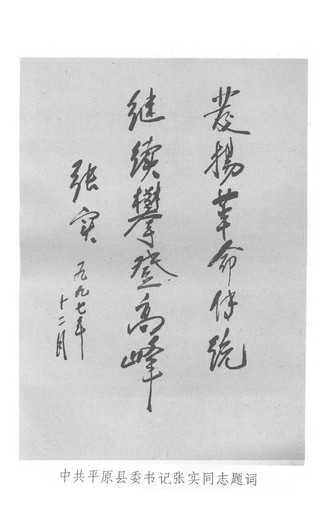 發揚革命传统
继续攀登高峰
张实
一九九七年
十二月
中共平原县委书记张实同志题词